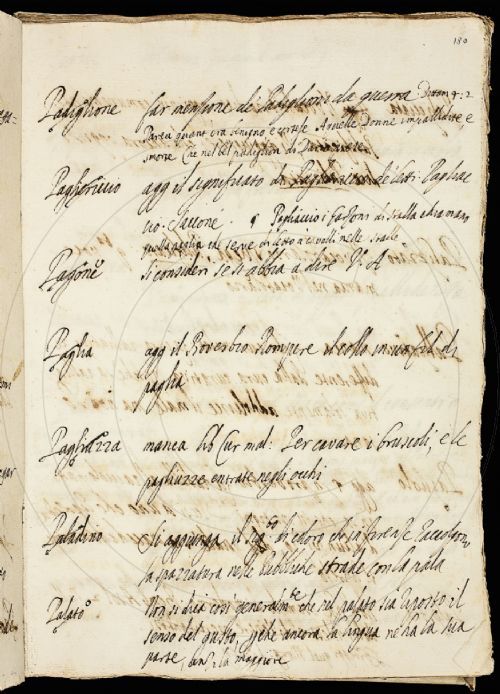 180
Padiglione far menzione de Padiglioni da guerra
Parea quant' era benigno e cortese A quelle Donne impallidite, e
smorte Che nel bel padiglion di
Pagliericcio agg il significato di de letti Pagliac
cio. Saccone. Pagliaccio i fazzoni di stalla chiaman
quella paglia che serve di letto a cavalli nelle stalle
Pagone si consideri se si abbia a dire V. A
Paglia agg il Proverbio Rompere il collo in un fil di
paglia
Pagliuzza manca lib Cur mal: Per cavare i bruscoli, e le
pagliuzze entrate negli occhi
Paladino Si aggiunga il sig di coloro che in Firenze raccolgono
la spazzatura nelle pubbliche strade con la pala
Palato Non si dica così generalmte che nel palato sia riposto il
senso del gusto, perche ancora la lingua ne ha la sua
parte, anzi la maggiore